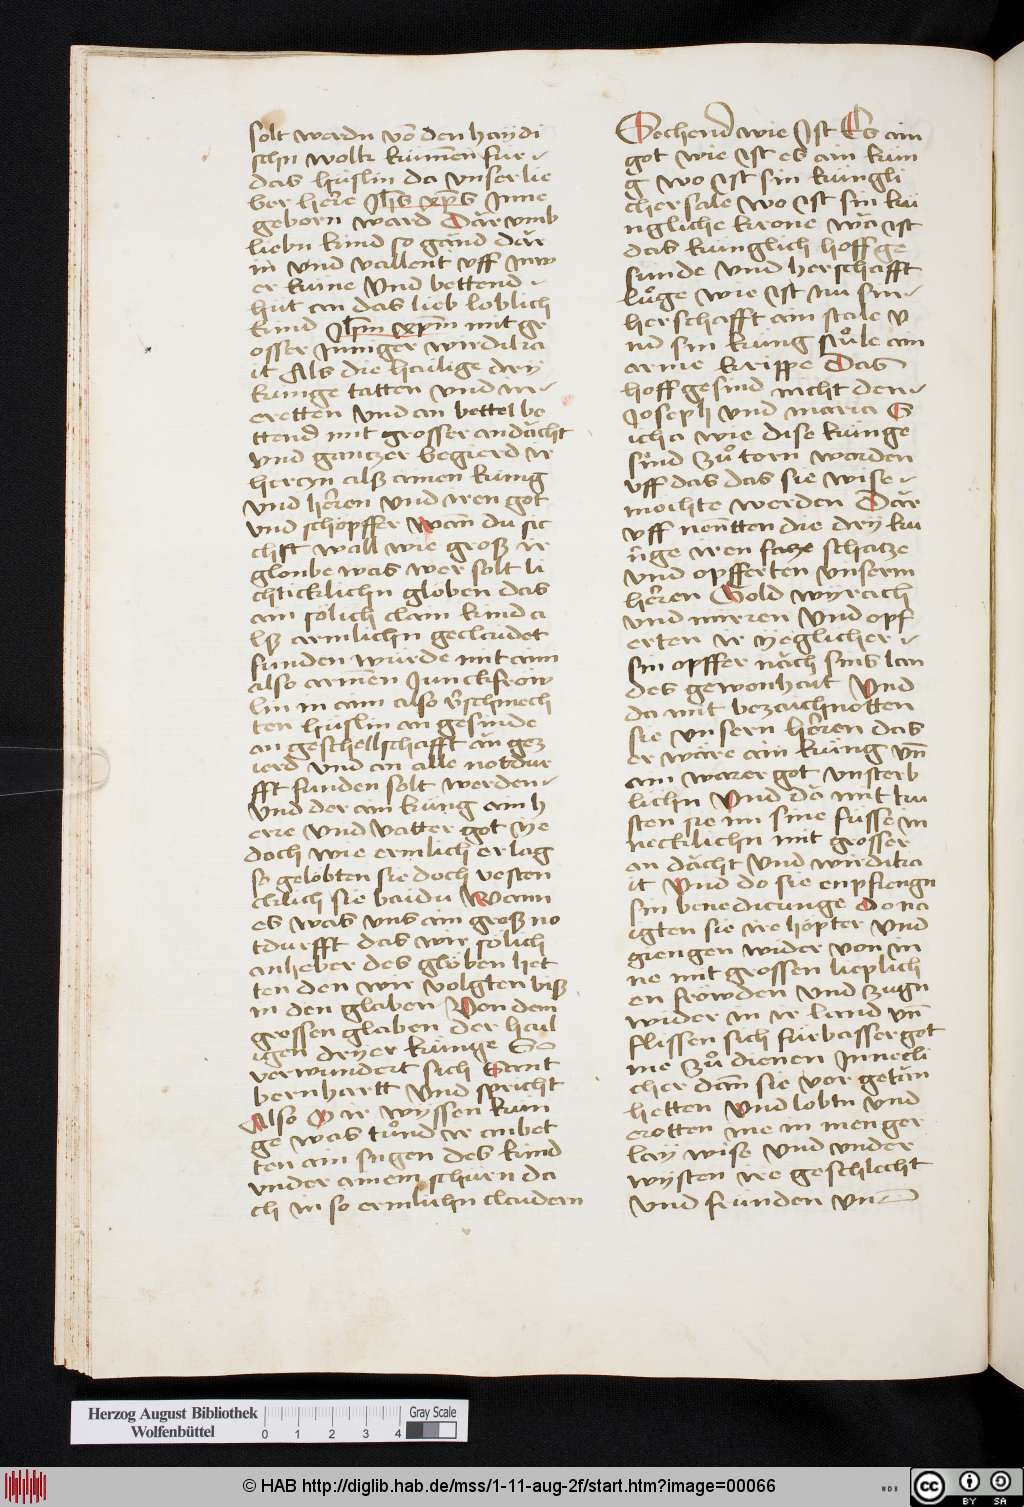 solt werdn võ den haydi
schn wolk̃ kum̃en für
das hüslin da vnser lie
ber here Jh̃s xp̃s Jnne
geborn ward Där vmb
liebn kind so gänd där
in vnd vallent vff Juw
er knine Vnd bettend
hüt an das lieb loblich
kind Jh̃m xp̃m mit gr
osser Jnniger wirdika
it Als die hailige dry
kunige tatten vnd in
eretten vnd an bettel be
ttend mit grosser andächt
vnd gantzer begierd ir
hercyn alß ainen kunig
vnd heren vnd iren got
vnd schöpffer wañ du sic
chst wall wie groß ir
gloube was wer solt li
chticklichn globen das
ain sölich clain kind a
lß armlichn geclaidet
funden wurde mit ainr
also armen Junckfrow
lin in aim also v̈schmech
ten hüslin an gesinde
an geschellschafft än gez
ierd vnd an alle notdur
fft funden solt werden
Vnd der ain kung ain h
erre vnd vatter got ye
doch wie ermlich er lag
so gelobten sie doch vesten
cklich sie baidu Wann
es was vns ain groß no
tdurfft das wir sölich
anheber des globen het
ten den wir volgten biß
in den glaben Von dem
grossen glaben der hail
igen dryer kunige So
verwundert sich Sant
bernhartt Vnd spricht
Also O ir wyssen kuni
ge was tuͦnd ir anbet
ten ain sugen des kind
vnder ainem schürn da
ch in so ermlichn claidern
Sechend wie Jst Es ain
got wie ist es ain kün
g wo ist sin küngli
cher sale wo ist sin kü
ngliche krone wa ist
das künglich hoff ge
sinde vnd herschafft
luͦge wie ist nu sin
herschafft ain stale v
nd sin kunig stuͦle ain
arme krippe Das
hoff gesind nicht den
Joseph vnd maria S
icha wie dise künge
sind zuͦ torn worden
vff das das sie wise
möchte werden Där
vff nentten die dry ku
nige iren schatze
vnd opfferten vnserm
heren Gold wyrach
vnd mirren Vnd opf
erten ir yeglicher
sin opffer näch sins lan
des gewonhait Vnd
da mit bezaichnotten
sie vnsern heren das
er wäre ain küng vñ
ain warer got vnsterb
lichn Vnd dä mit ku
sten sie im sine füsse in
necklichn mit grosser
an dächt Vnd wirdika
it Vnd do sie enpfiengn
sin benedicunge Do na
igten sie ire höpter Vnd
giengen wider von in
ne mit grossen lieplich
en fröwden Vnd zugn
wider in ir land vñ
flissen sich fürbasser got
me zuͦ dienen Jnnecli
cher dañ sie vor getän
hetten Vnd lobtn vnd
erotten inn in menger
lay wise vnd vnder
wysten ire geschlächt
vnd fründen vn
Herzog August Bibliothek
Wolfenbüttel
0 1 2 3 4
Gray Scale
© HAB http://diglib.hab.de/mss/1-11-aug-2f/start.htm?image=00066
WDB
cc BY SA